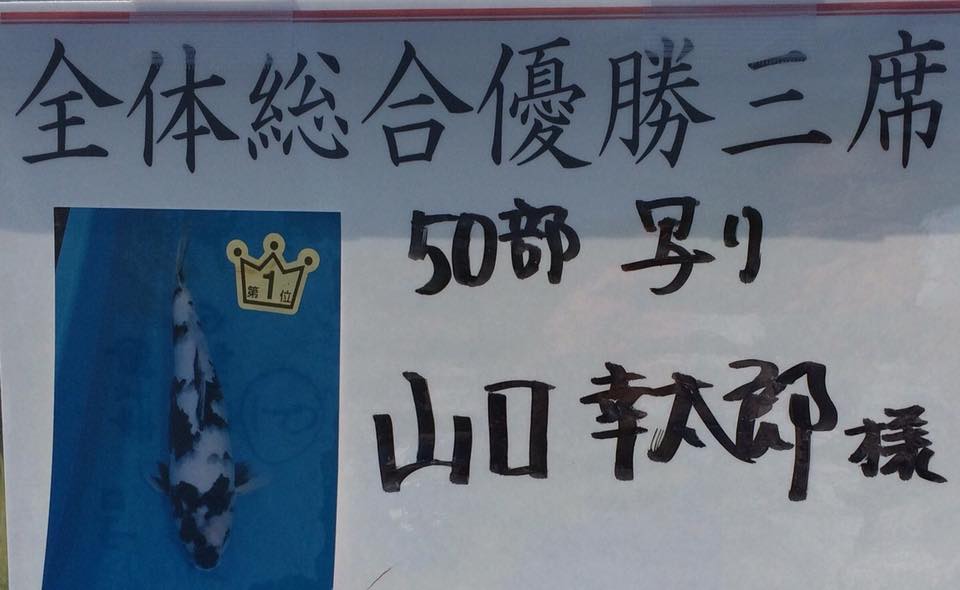 全体総合優勝三席
50部 写り
第1位
山口幸太郎様